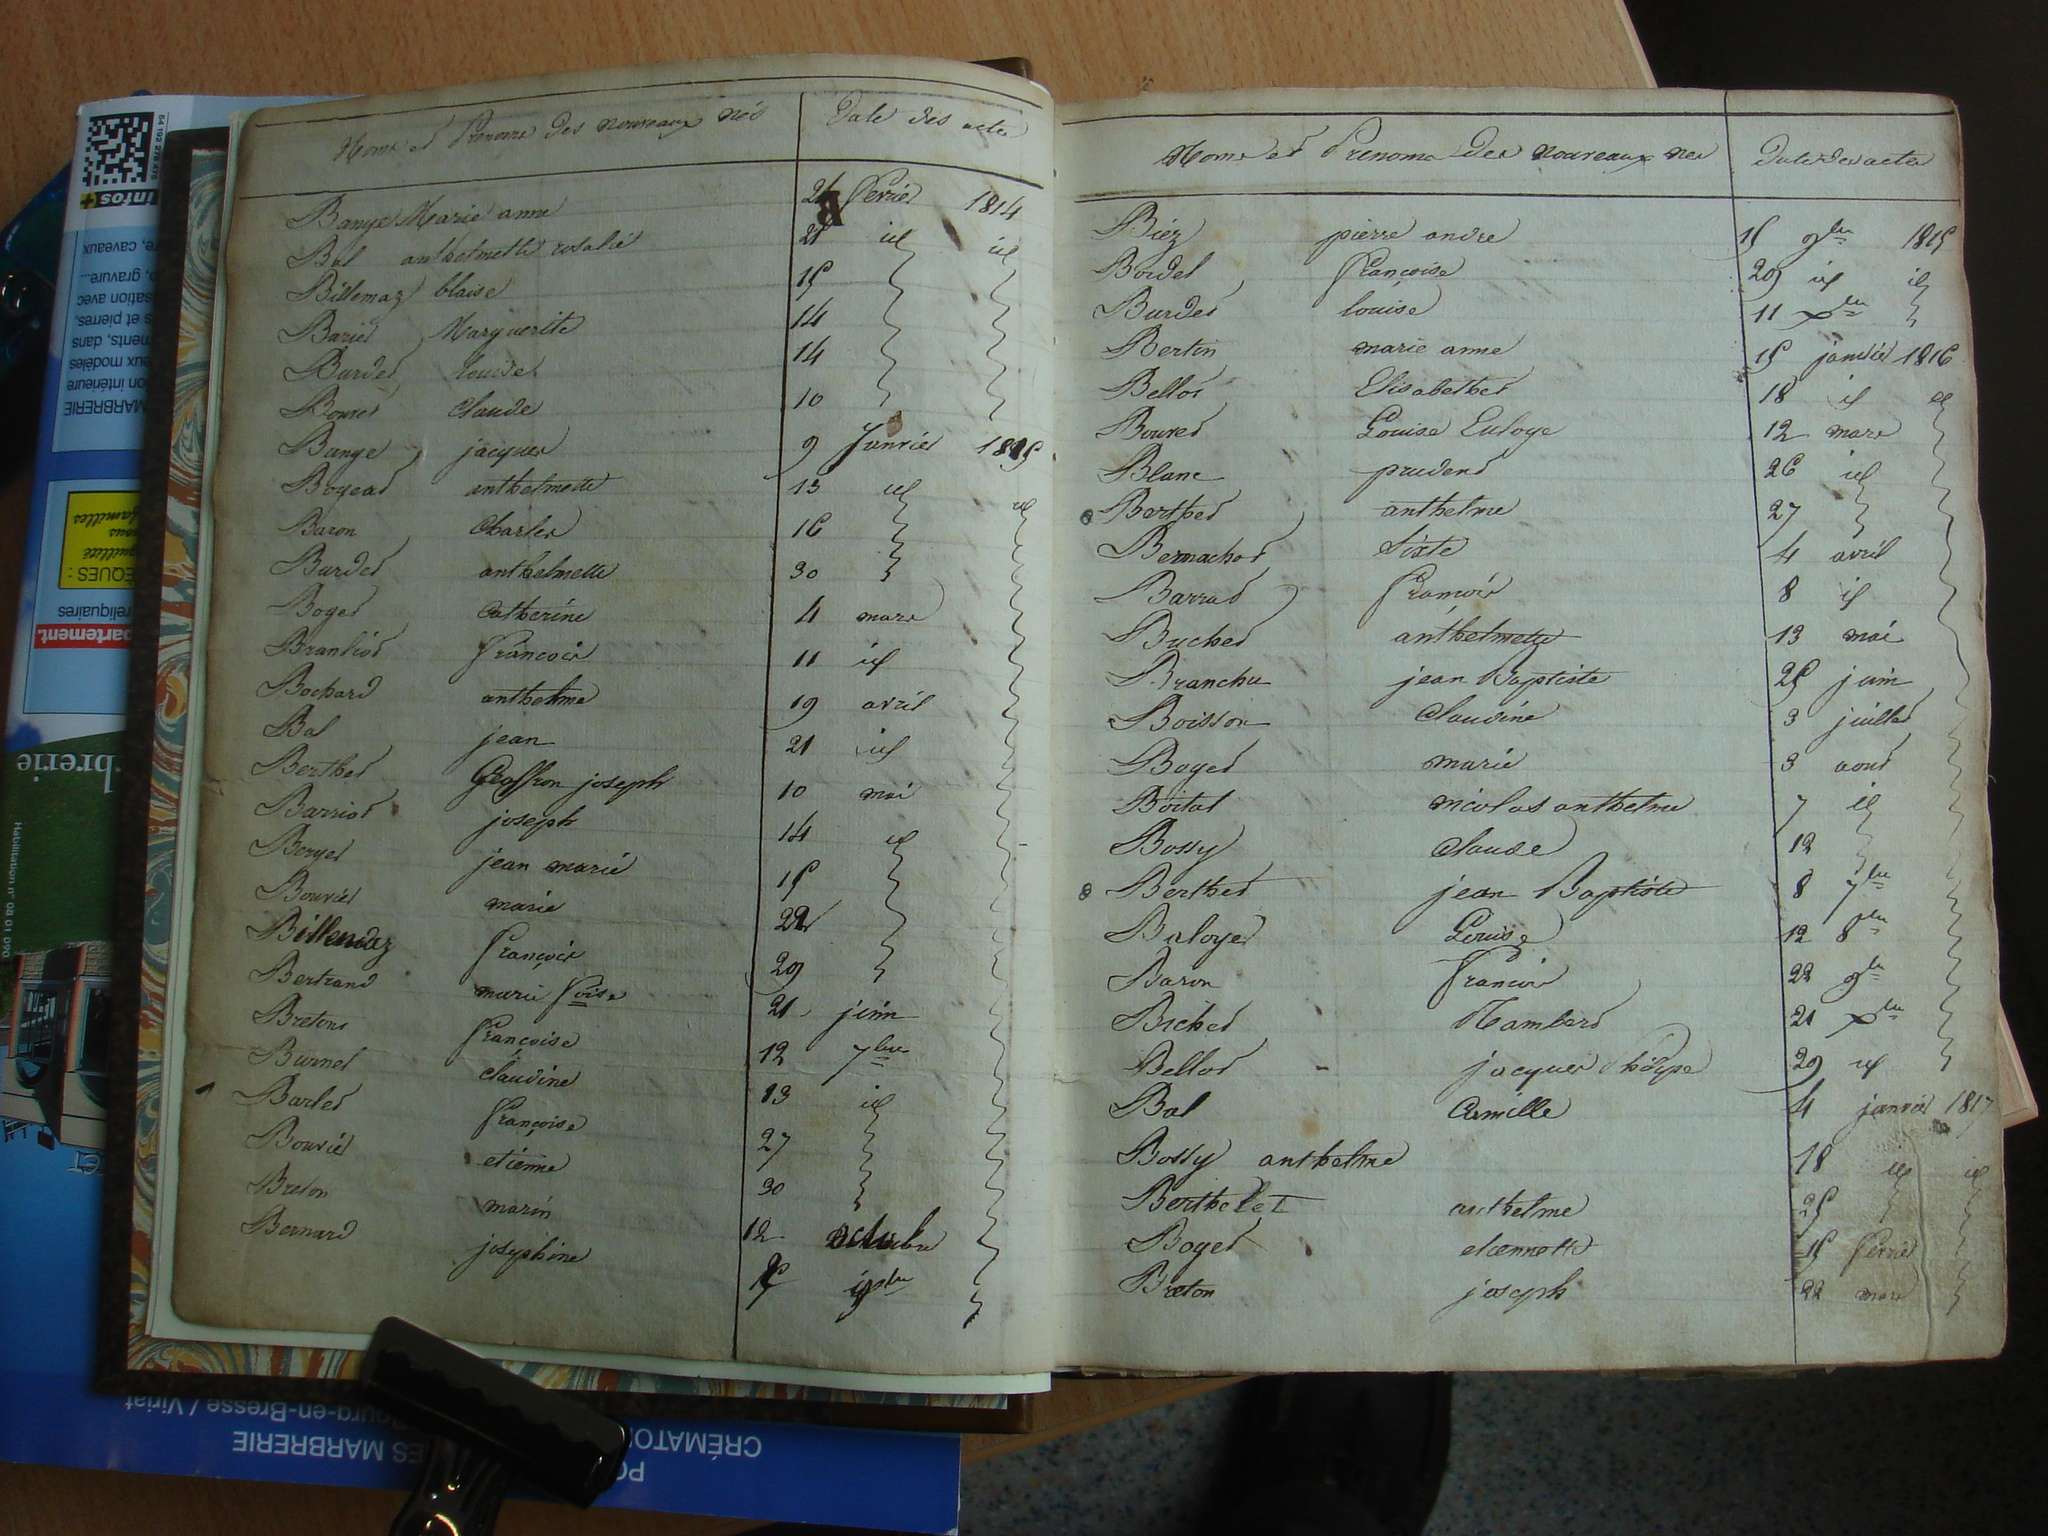 Noms et Prenoms des nouveaux nés Date des actes
Bange Marie anne fevrier 1814
Bal anthelmette rosalie 21 id id
Billemaz blaise 15
Marguerite 14
Burdet 14
Bouvet Claude 10
Bange jacques 9 Janvier 1815
anthelmette 13 id id
Baron Charles 16
Burdet anthelmette 30
Boget Catherine 4 mars
francois 11 id
Bochard anthelme 19 avril
Bal jean 21 id
Berthet joseph 10 mai
Barriot joseph 14 id
Berget jean marie 15
Bouvier marie 22
Billemaz françois 29
Bertrand marie foise 21 juin
Breton françoise 12 7bre
Burnet claudine 13 id
Barlet françoise 27
Bouvier etienne 30
Breton marin 12 octobre
Bernard josephine
Noms et Prenoms des nouveaux nes Date des actes
Biez pierre andre 15 9bre 1815
françoise 29 id id
Burdet louise 11 xbre
Bertin marie anne 15 janvier 1816
Bellot Elisabethet 18 id id
Bouvet Louise Euloge 12 mars
Blanc prudent 26 id
Berthet anthelme 27
Bernachot Sixte 4 avril
Barrat francois 8 id
Buchet 13 mai
Branchu jean Baptiste 25 juin
Boisson Claudine 3 juillet
Boget marie 3 aout
nicolas anthelme 7 id
Bossy Claude 12
Berthet jean Baptiste 8 7bre
Baloyet Louise 12 8bre
Baron francois 22 9bre
Bichet Rambert 21 xbre
Bellot jacques 29 id
Bal Camille 4 janvier 1817
Bossy anthelme 18 id id
Berthelet anthelme 25
Boget 15 fevrier
Breton joseph 22 mars
infos+
MARBRERIE
CRÉMATO
ES MARBRERIE
ourg-en-Bresse / Viriat